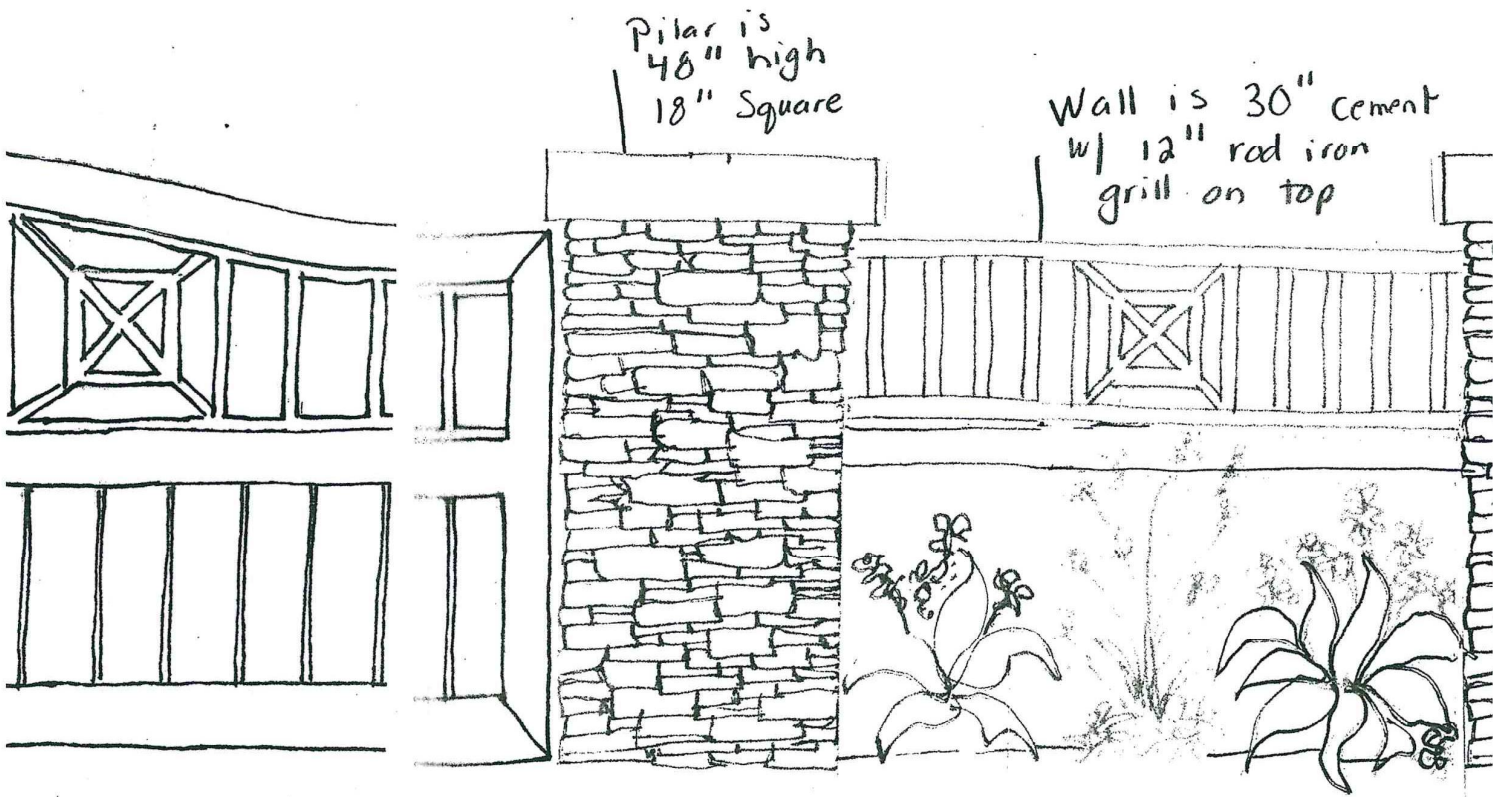 Pilar is
48" high
18" Square
Wall is 30" cement
w/ 12" rod iron
grill on top